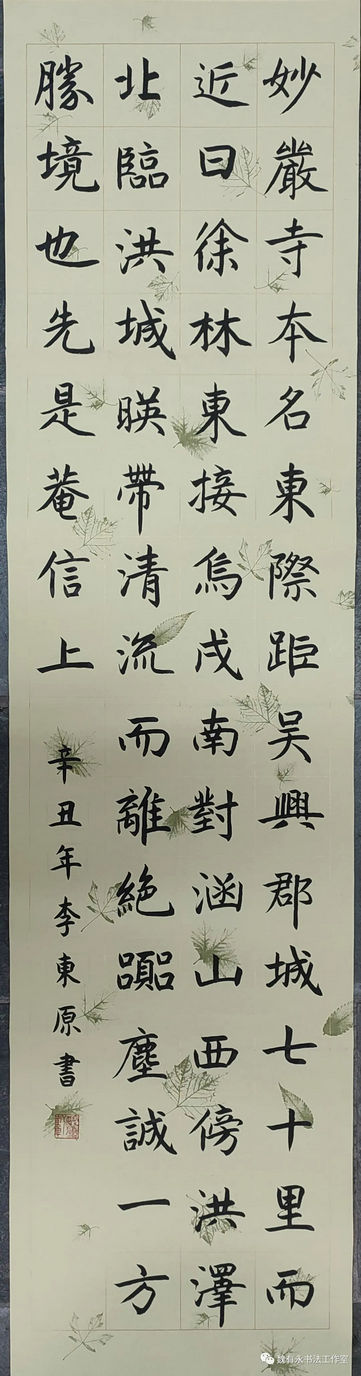 妙嚴寺本名東際距吴興郡城七十里而
近曰徐林東接烏戍南對涵山西傍洪澤
北臨洪城暎帶清流而離絶嚻塵誠一方
勝境也先是菴信上
辛丑年李東原書
魏有永书法工作室